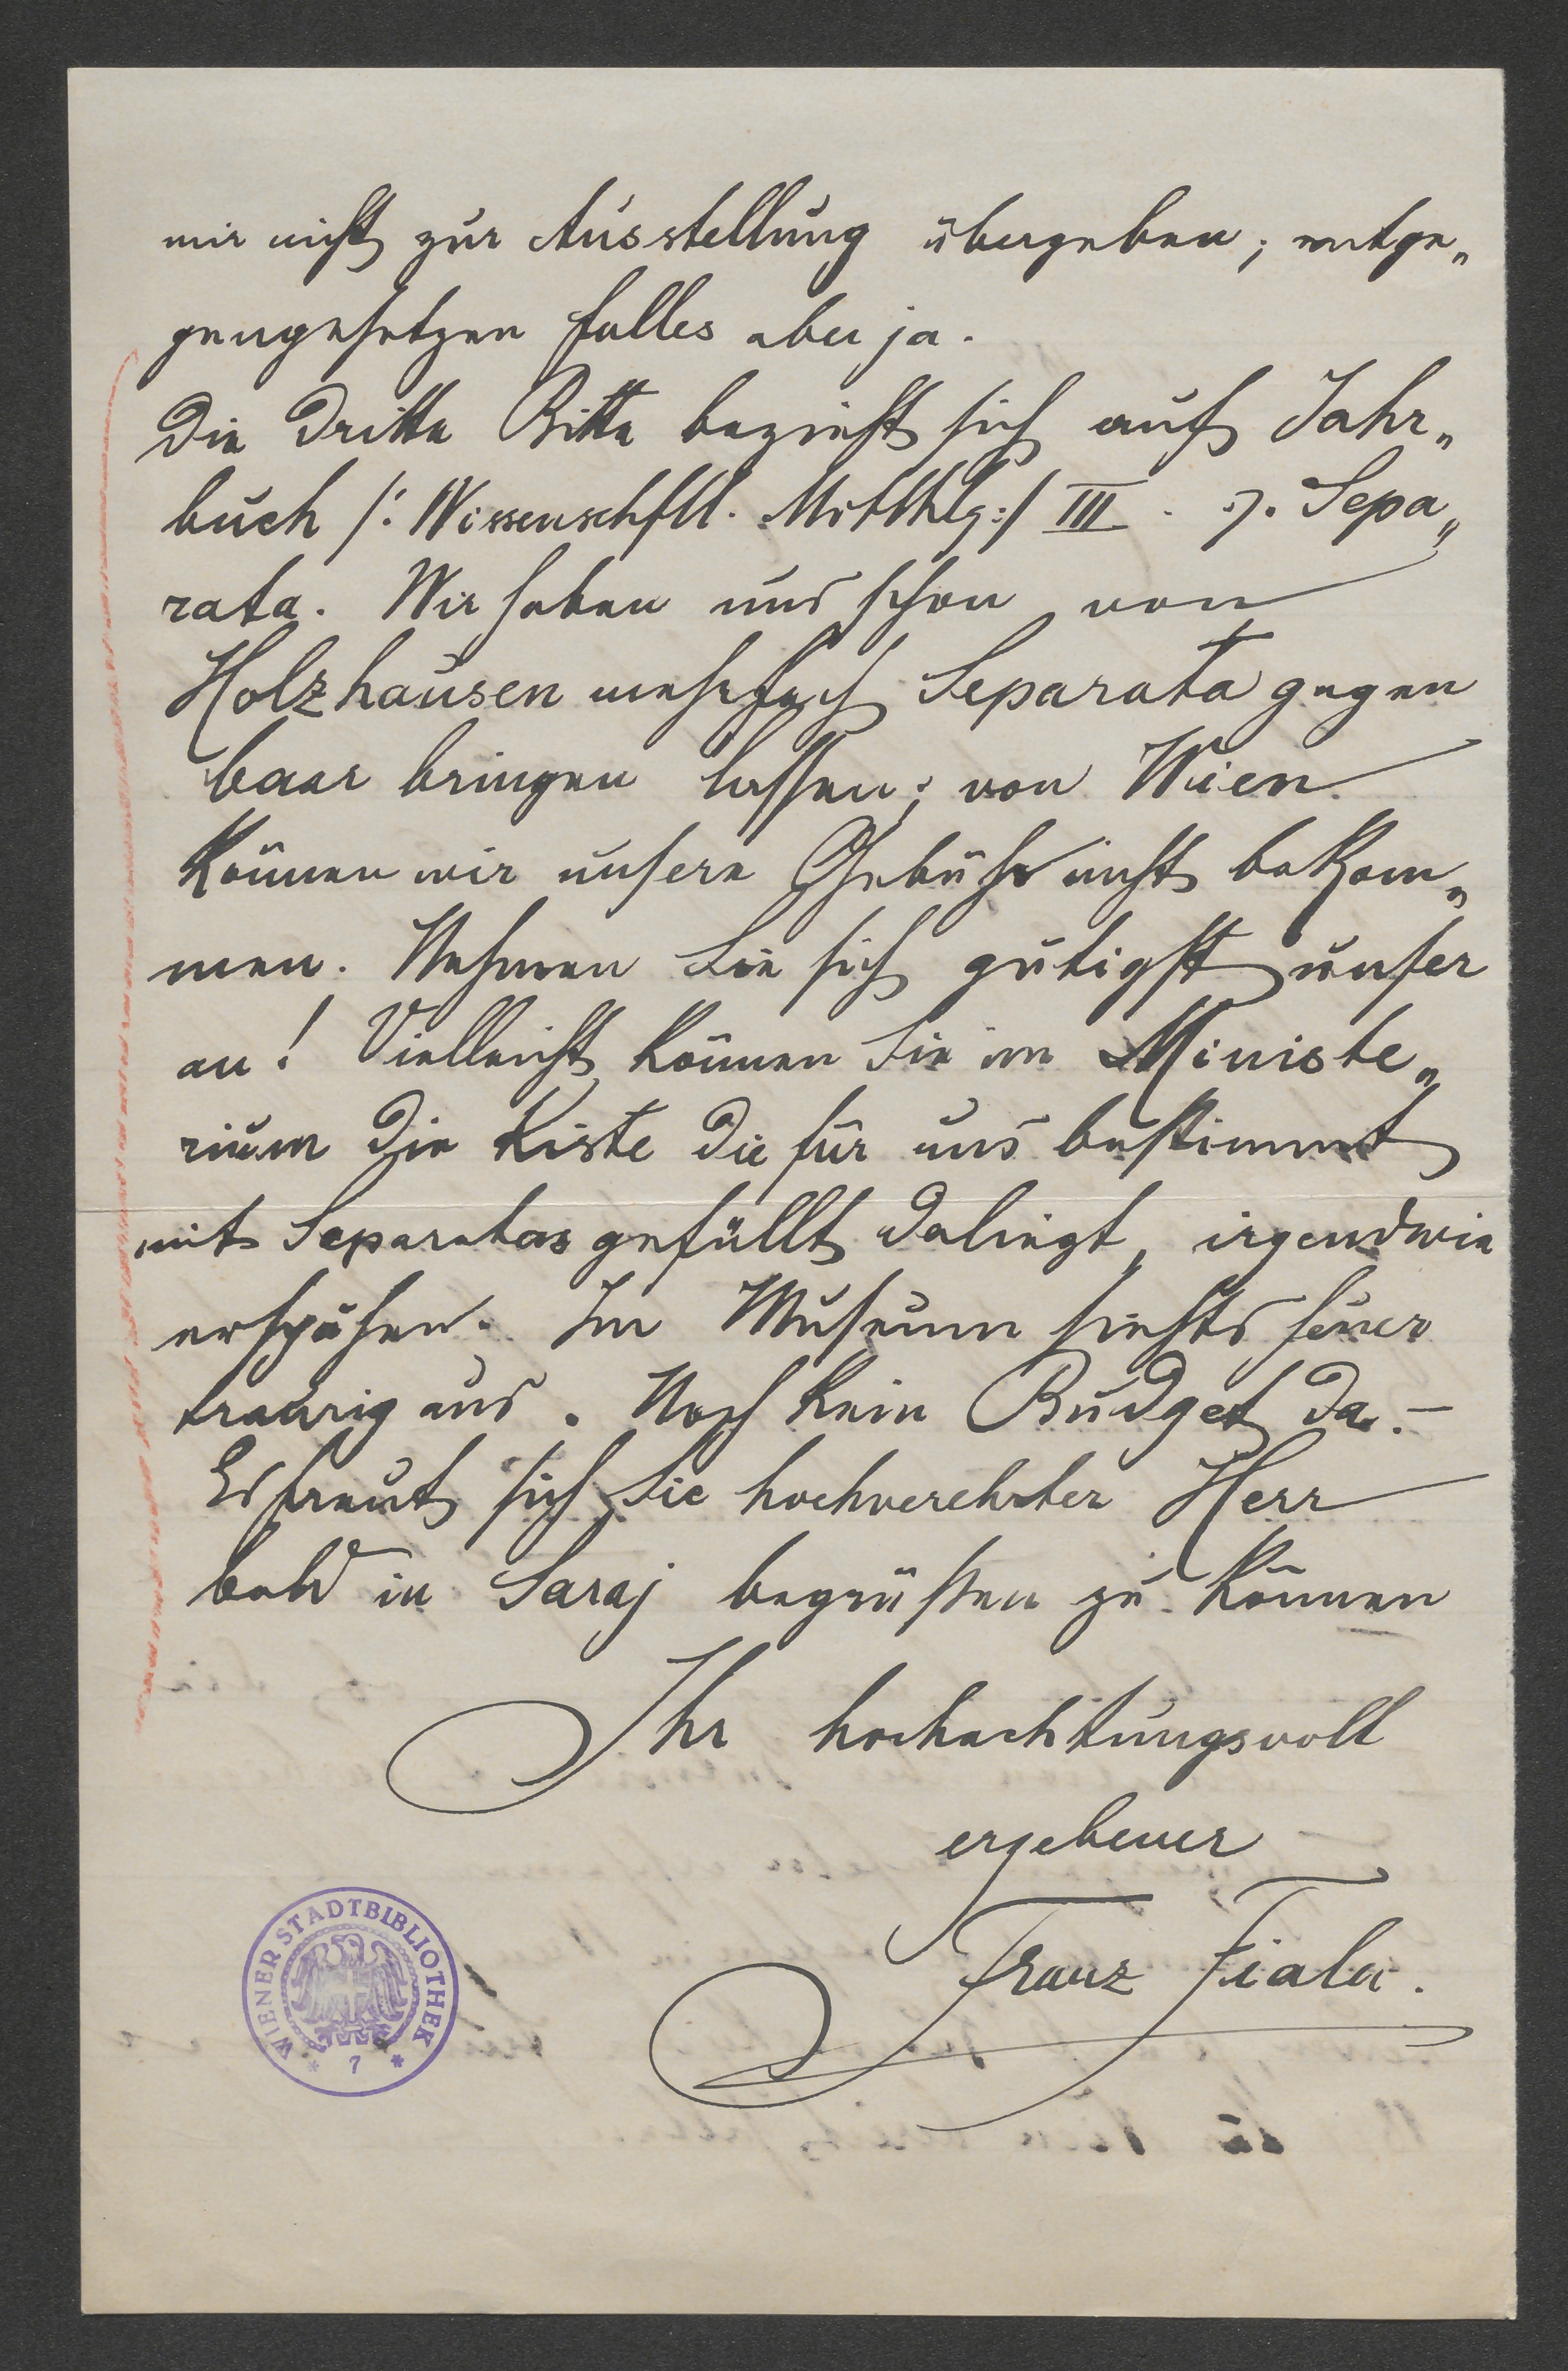 mir nicht zur Ausstellung übergeben; entge„
gengesetzen falles aber ja.
Die dritte Bitte bezieht sich aufs Jahr„
buch /: Wissenschftl. Mittthlg:/ III. Sepa„
rata. Wir haben uns schon von
Holzhausen mehrfach Separata gegen
baar bringen lassen; von Wien
können wir unsere Gebühr nicht bekom„
men. Nehmen Sie sich gütigst unser
an! Vielleicht können Sie im Ministe„
rium die Kiste die für uns bestimmt
mit Separatas gefüllt daliegt, irgendwie
erspähen. Im Museum siehts heuer
traurig aus. Noch kein Budget da.—
Es freut sich Sie hochverehrter Herr
bald in Saraj begrüßen zu können
Ihr hochachtungsvoll
ergebener
Franz Fiala.
WIENER STADTBIBLIOTHEK
* 7 *